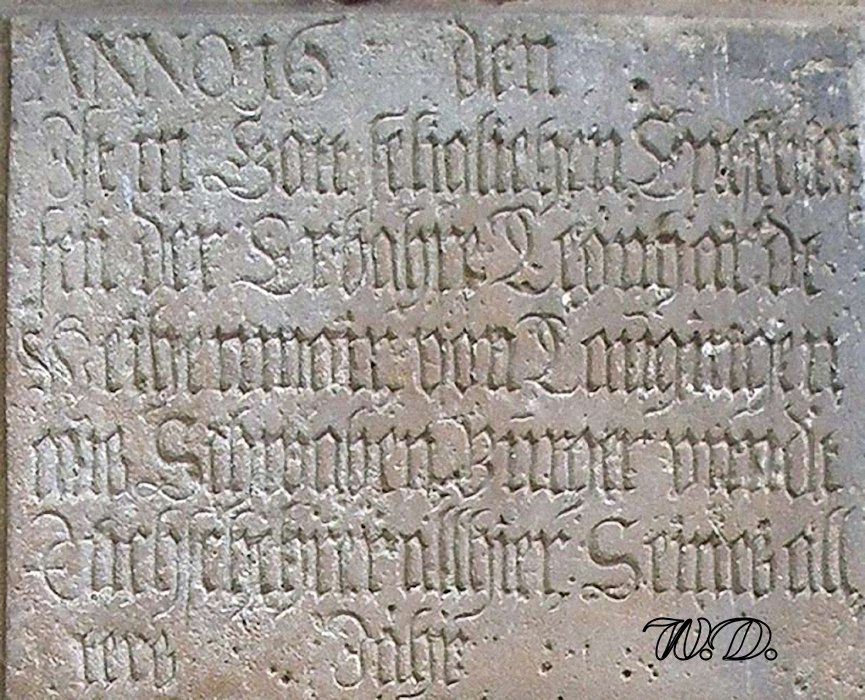 ANNO 16 den
Ist in Gott sehligliehen Entschla
fen der Erbahre Leonhardt
Weihenmair von Laugingen
aus Schwaben Burger vnndt
Tuchscherer allhier Seines all
ters Jahr
W.D.